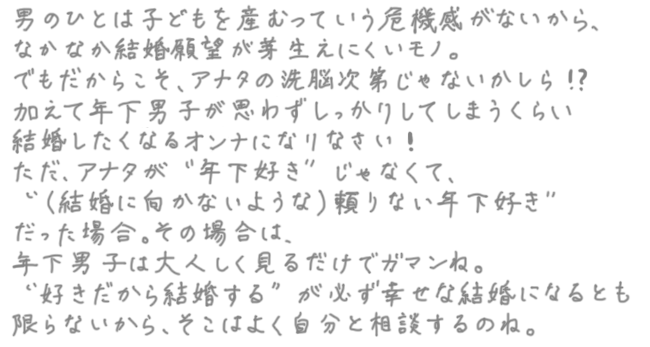 男のひとは子どもを産むっていう危機感がないから、
なかなか結婚願望が芽生えにくいモノ。
でもだからこそ、アナタの洗脳次第じゃないかしら!?
加えて年下男子が思わずしっかりしてしまうくらい
結婚したくなるオンナになりなさい!
ただ、アナタが“年下好き”じゃなくて、
“(結婚に向かないような)頼りない年下好き”
だった場合。その場合は、
年下男子は大人しく見るだけでガマンね。
“好きだから結婚する”が必ず幸せな結婚になるとも
限らないから、そこはよく自分と相談するのね。